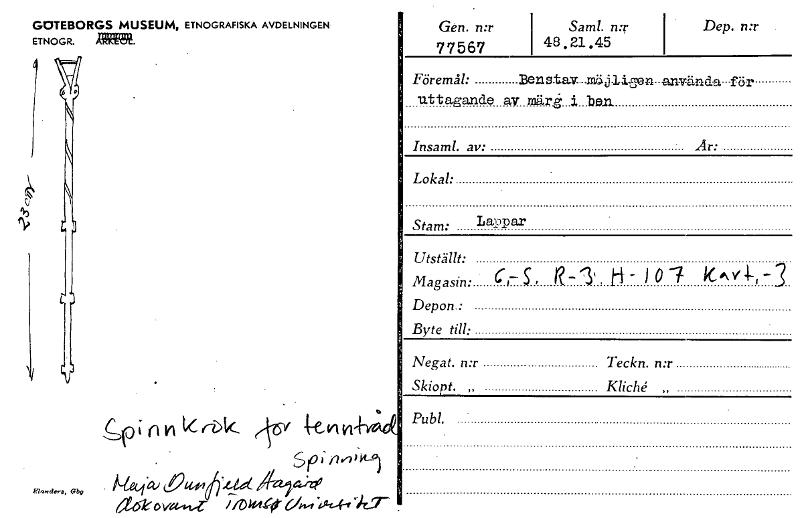 GÖTEBORGS MUSEUM, ETNOGRAFISKA AVDELNINGEN
ETNOGR. ARKEOL.
23 cm
Spinnkrok för tenntråd
Spinning
Maja Dunfjeld Aagård
dokorant Tromsø Universitet
Elanders, Gbg
Gen. n:r Saml. n:r Dep. n:r
77567 48.21.45
Föremål: Benstav möjligen använda för
uttagande av märg i ben
Insaml. av: År:
Lokal:
Stam: Lappar
Utställt:
Magasin: G,-S. R-3. H-107 Kart.-3
Depon.:
Byte till:
Negat. n:r Teckn. n:r
Skiopt. „ Kliché „
Publ.